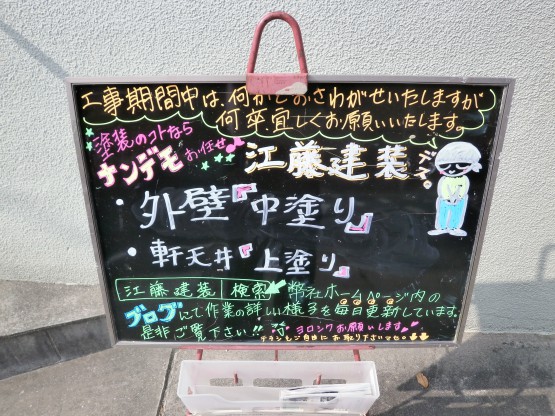 工事期間中は、何かとおさわがせいたしますが
何卒、宜しくお願いいたします。
塗装のコトなら
ナンデモお任せ
江藤建装
・外壁『中塗り』
・軒天井『上塗り』
江藤建装 検索 弊社ホームページ内の
ブログにて作業の詳しい様子を毎日更新しています。
是非ご覧下さい!! ヨロシクお願いします
チラシもご自由にお取り下さいませ。